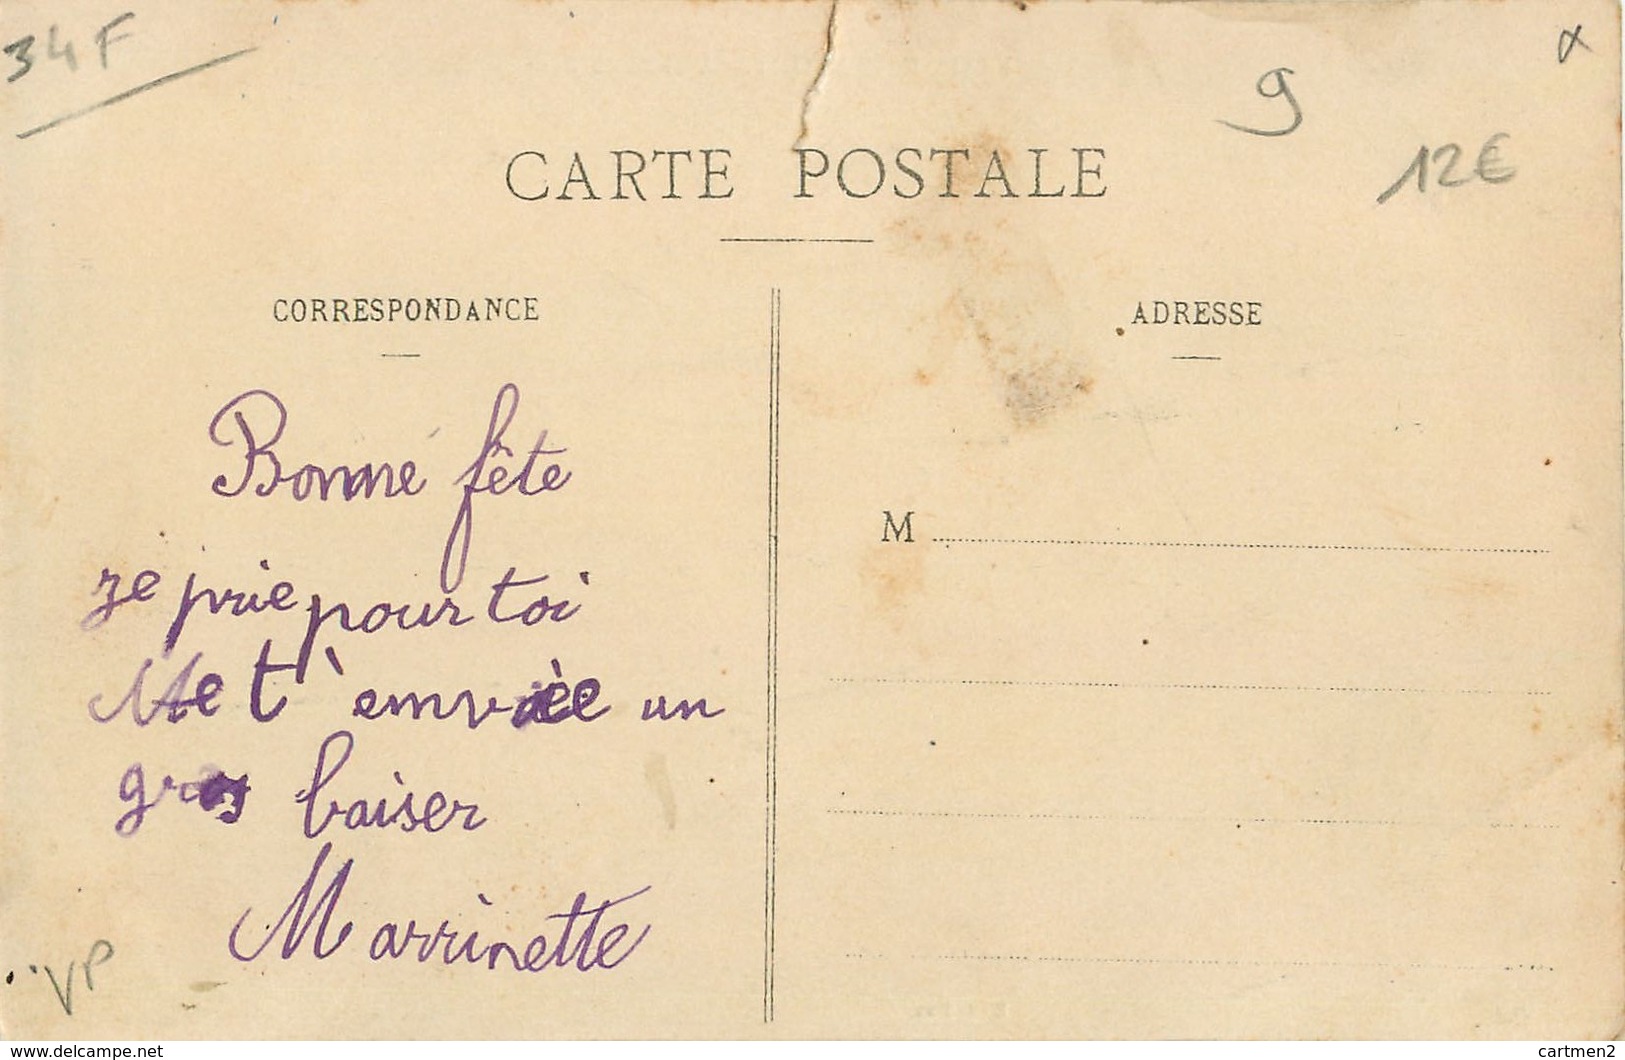 34F
9
12€
CARTE POSTALE
CORRESPONDANCE
ADRESSE
Bonne fête
je prie pour toi
et t'envoie un
gros baiser
Marrinette
M
VP
www.delcampe.net
cartmen2